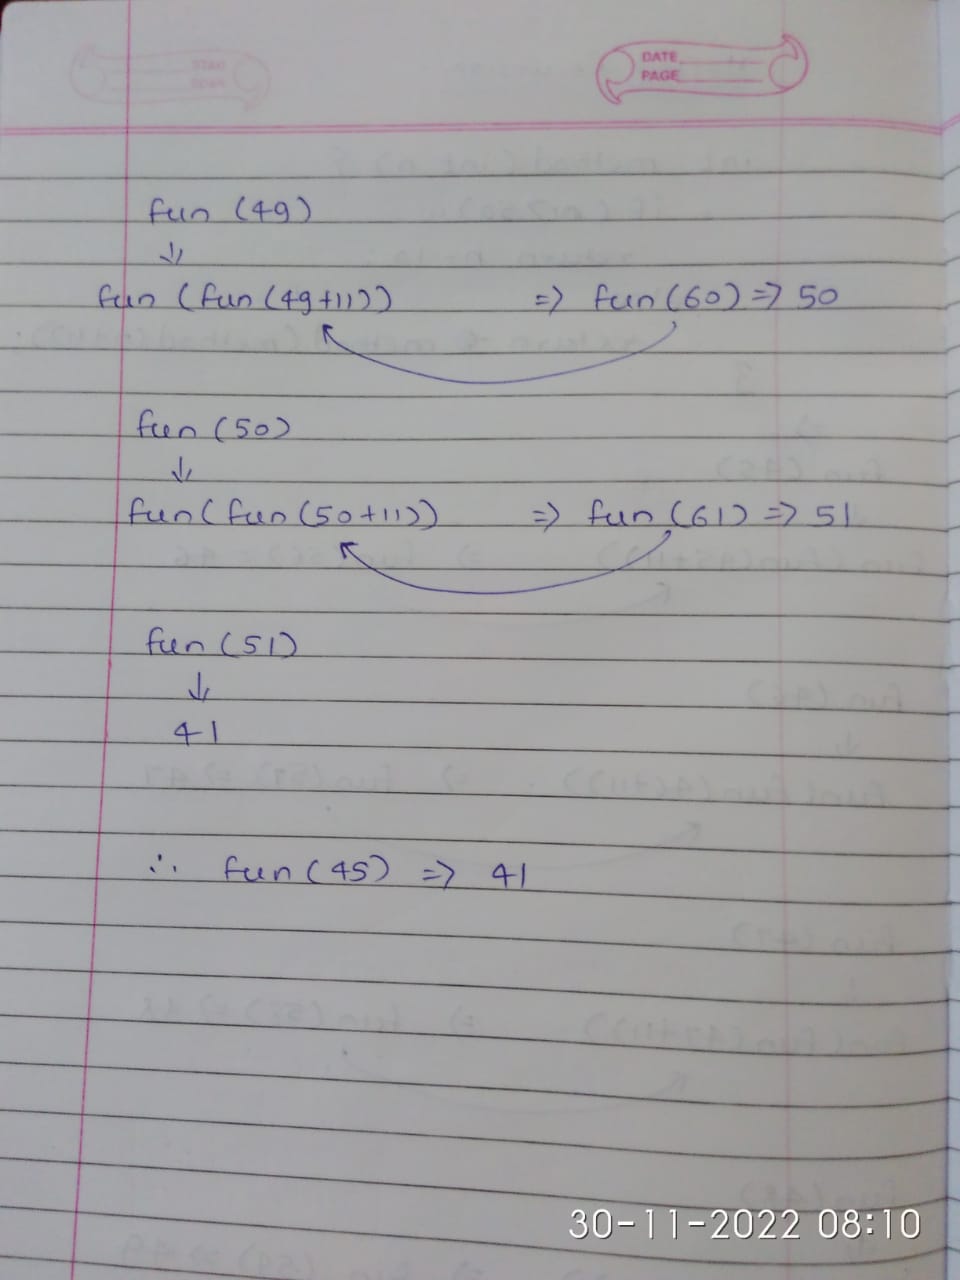 DATE
PAGE
fun (49)
↓
fun (fun (49+11)) => fun (60) => 50
fun (50)
↓
fun (fun (50+11)) => fun (61) => 51
fun (51)
↓
41
∴ fun (45) => 41
30-11-2022 08:10